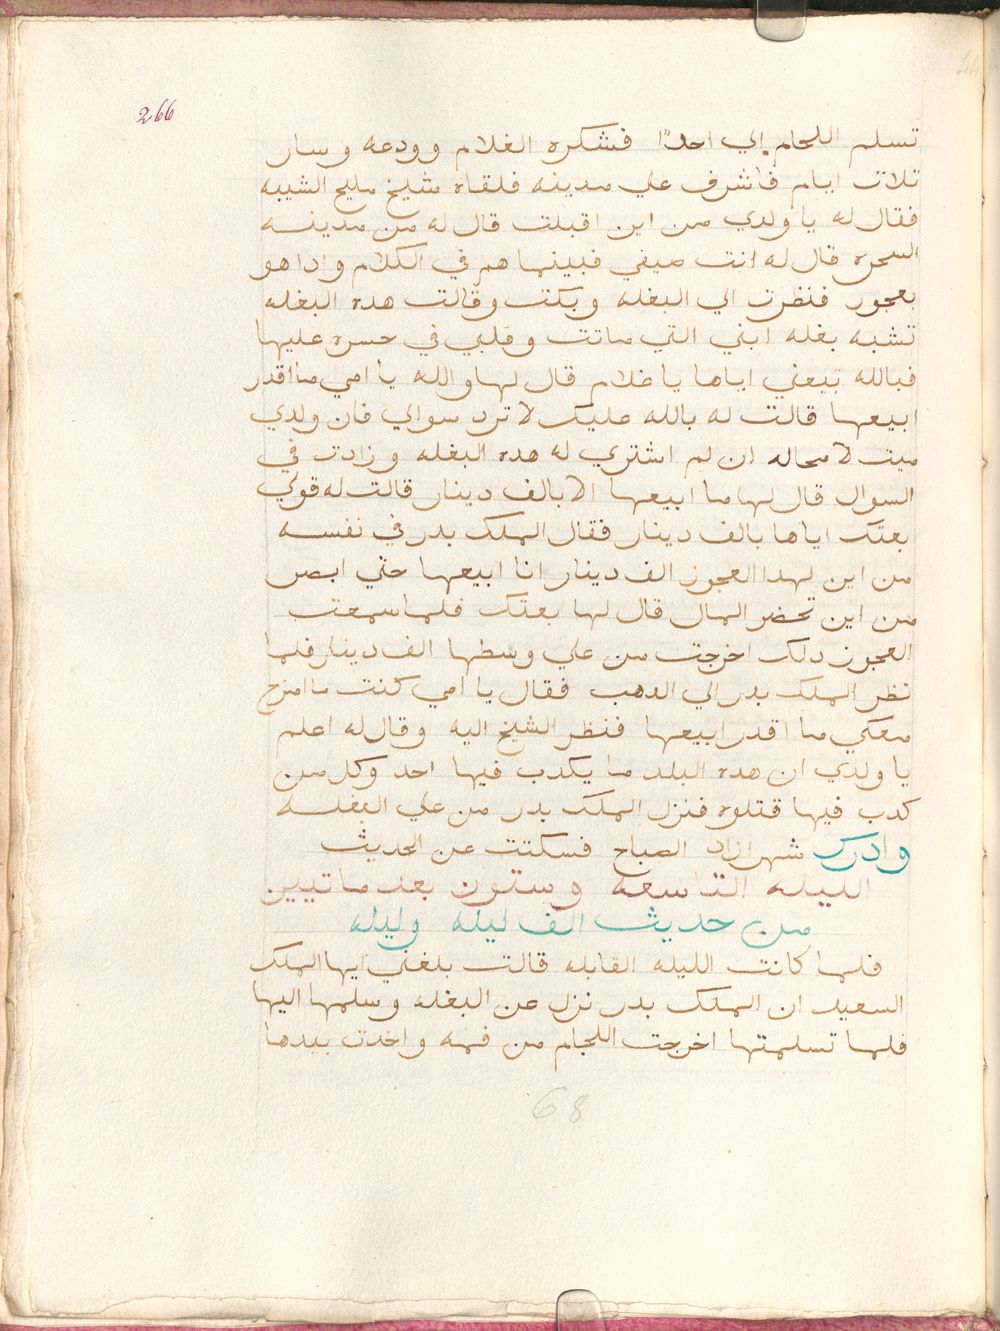 266
تسلم اللحام إلي احدًا فشكره الغلام وودعه وسار
تلات ايام فاشرف علي مدينه فلقاه شيخ مليح الشيبه
فقال له يا ولدي من اين اقبلت قال له من مدينه
السحره قال له انت ضيفي فبينما هم في الكلام وادا هو
بعجوز فنظرت الي البغله وبكت وقالت هده البغله
تشبه بغله ابني التي ماتت وقلبي في حسره عليها
فبالله تبيعني اياها يا غلام قال لها والله يا امي ما اقدر
ابيعها قالت له بالله عليك لا ترد سوالي فان ولدي
ميت لا محاله ان لم اشتري له هده البغله وزادت في
السوال قال لها ما ابيعها الا بالف دينار قالت له قولي
بعتك اياها بالف دينار فقال الملك بدر في نفسه
من اين لهدا العجوز الف دينار انا ابيعها حتي ابصر
من اين تحضر المال قال لها بعتك فلما سمعت
العجوز دلك اخرجت من علي وسطها الف دينار فلما
نظر الملك بدر الي الدهب فقال يا امي كنت ما امزح
معكي ما اقدر ابيعها فنظر الشيخ اليه وقال له اعلم
يا ولدي ان هده البلد ما يكدب فيها احد وكل من
كدب فيها قتلوه فنزل الملك بدر من علي البغله
وادرك شهرازاد الصباح فسكتت عن الحديث
الليله التاسعه وستون بعد ماتيين
من حديث الف ليله وليله
فلما كانت الليله القابله قالت بلغني ايها الملك
السعيد ان الملك بدر نزل عن البغله وسلمها اليها
فلما تسلمتها اخرجت اللجام من فمه واخدت بيدها
68